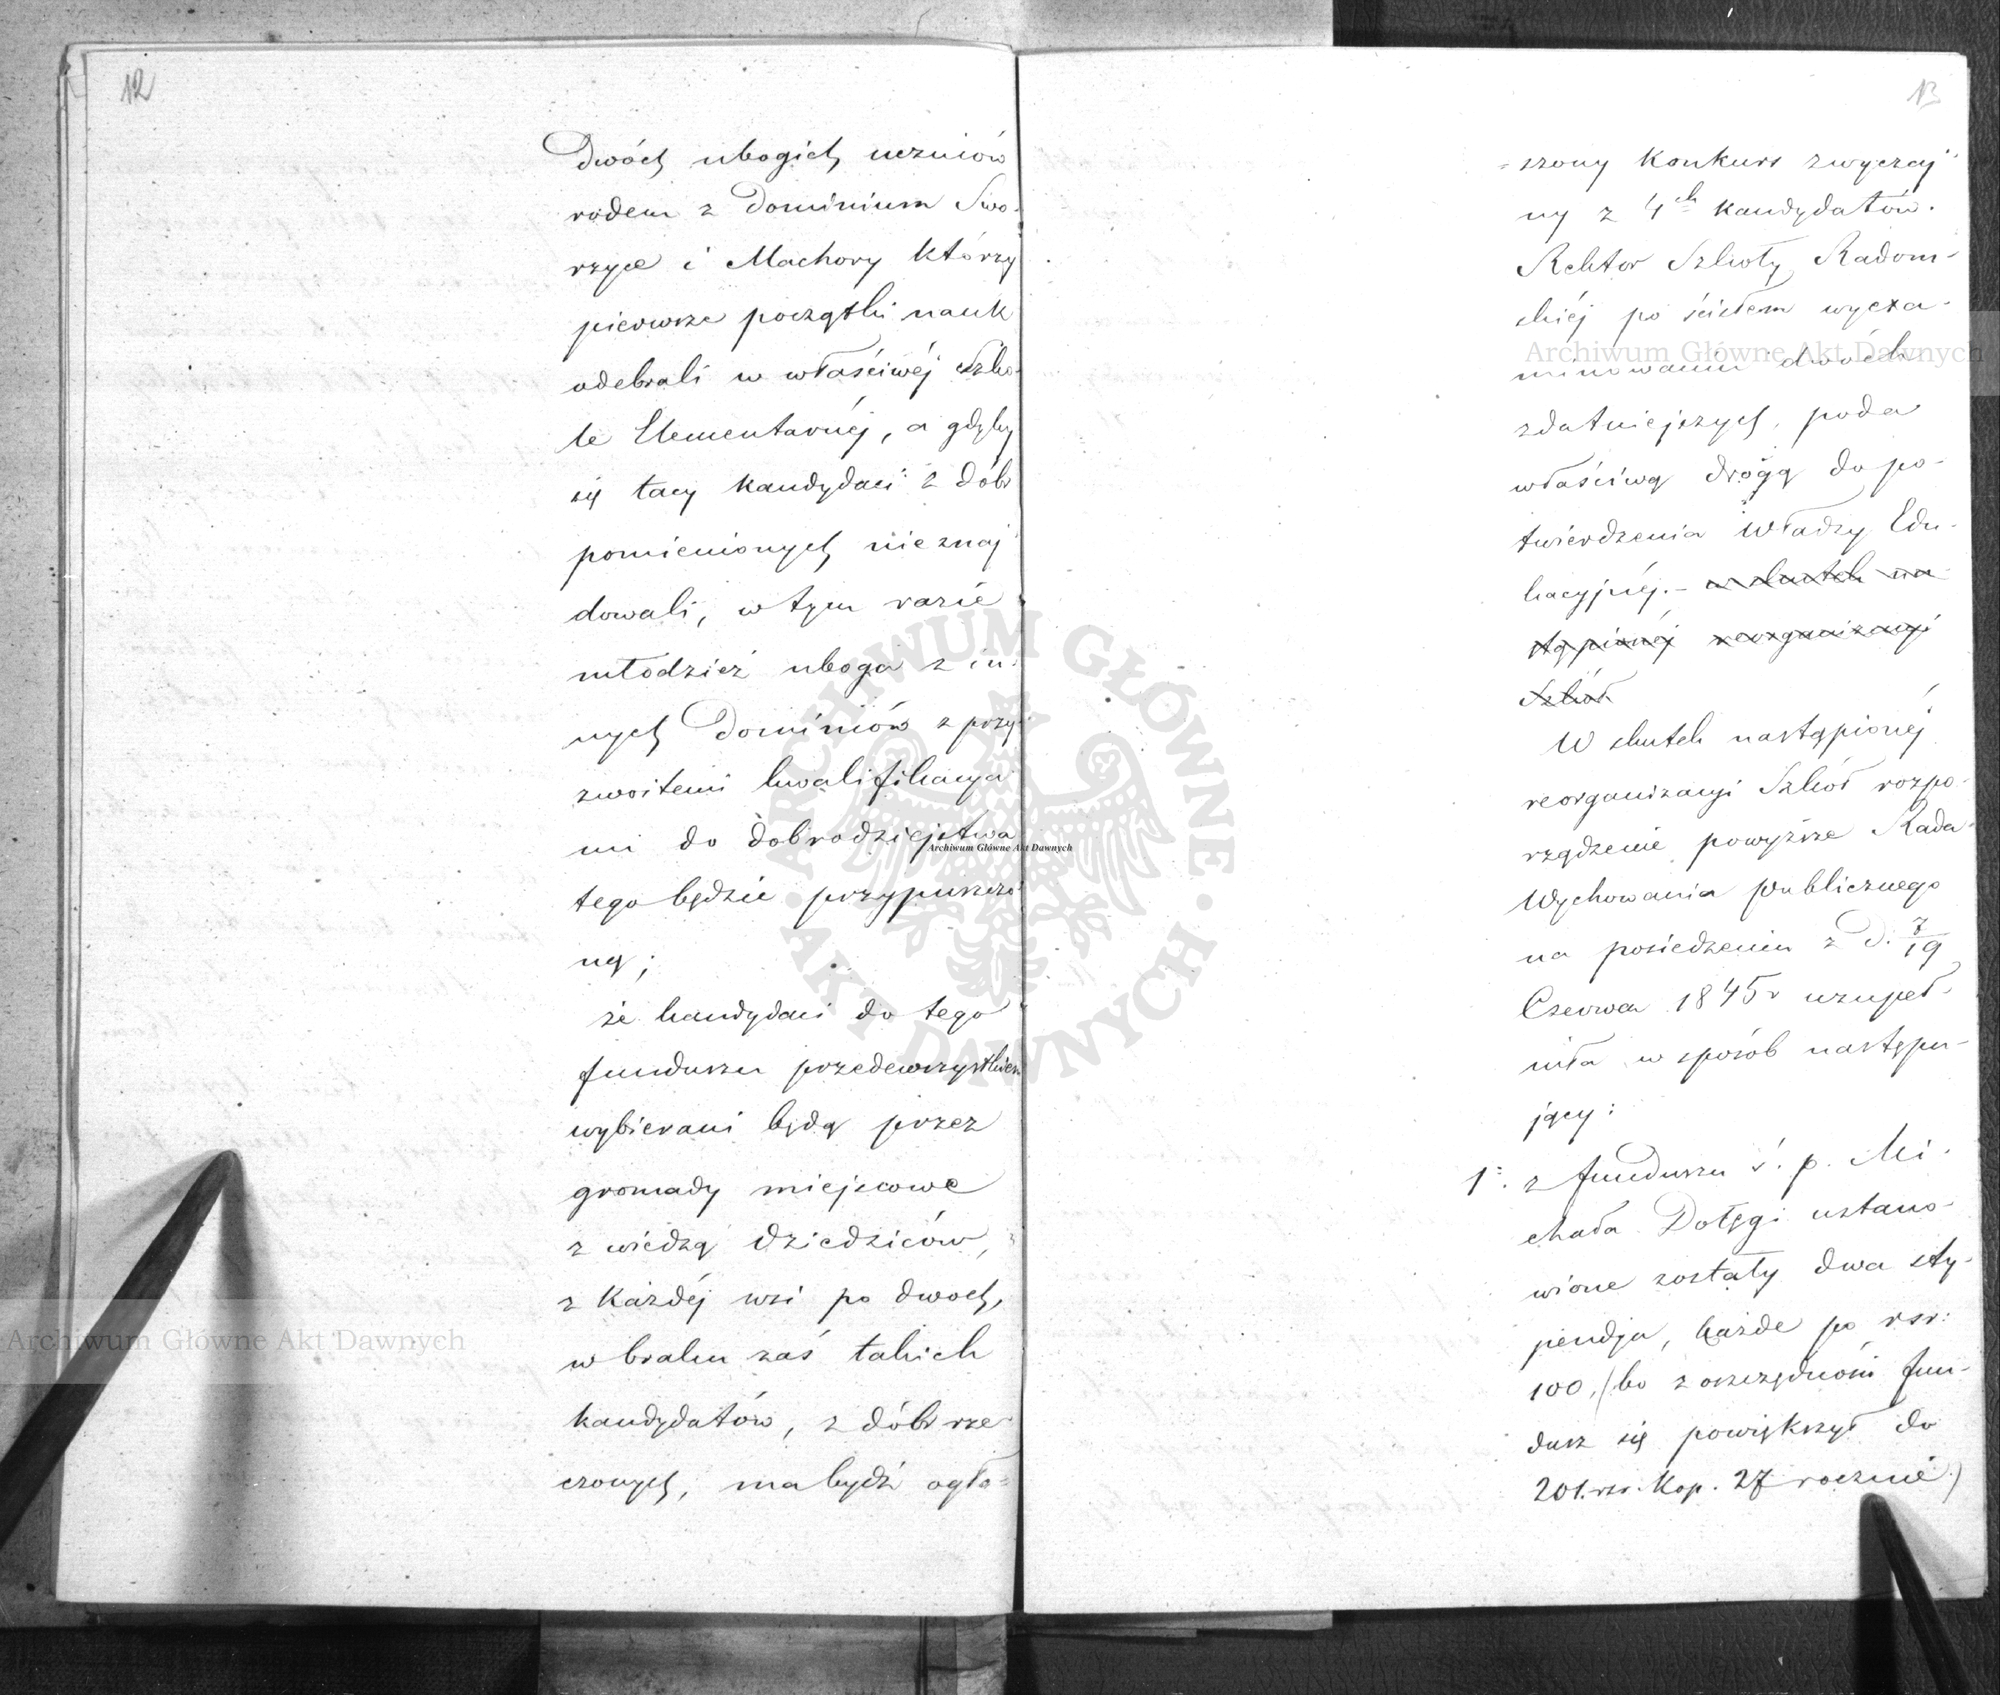 12
Dwóch ubogich uczniów
rodem z Dominium Swo-
rzyce i Machory którzy
pierwsze początki nauk
odebrali w właściwéj Szko-
le Elementarnéj, a gdyby
się tacy kandydaci z dóbr
pomienionych nieznaj
dowali, w tym razie
młodzież uboga z in-
nych Dominiów z przy-
zwoitemi kwalifikacya
mi do dobrodziejstwa
tego będzie przypuszczo
ną;
że kandydaci do tego
funduszu przedewszystkiem
wybierani będą przez
gromady miejscowe
z wiedzą dziedziców,
z każdéj wsi po dwoch,
w braku zaś takich
kandydatów, z dóbr rze-
czonych, ma bydź ogło-
13
-szony konkurs zwyczaj-
ny z 4ch kandydatów.
Rektor Szkoły Radom-
skiéj po ścisłem wyexa-
minowaniu dwóch
zdatniejszych, poda
właściwą drogą do po-
twierdzenia Władzy Edu-
kacyjnéj.- w skutek na-
stąpionéj reorganizacyi
Szkół
W skutek nastąpionéj
reorganizacyi Szkół rozpo-
rządzenie powyższe Rada
Wychowania Publicznego
na posiedzeniu z d. 7/19
Czerwca 1845 r uzupeł-
niła w sposób następu-
jący:
1°. z funduszu ś. p. Mi-
chała Dołęgi ustano-
wione zostały dwa sty-
pendja, każde po rsr:
100, (bo z oszczędności fun-
dusz się powiększył do
201. rsr. kop. 27 rocznie)
Archiwum Główne Akt Dawnych
Archiwum Główne Akt Dawnych
Archiwum Główne Akt Dawnych
ARCHIWUM GŁÓWNE
AKT DAWNYCH